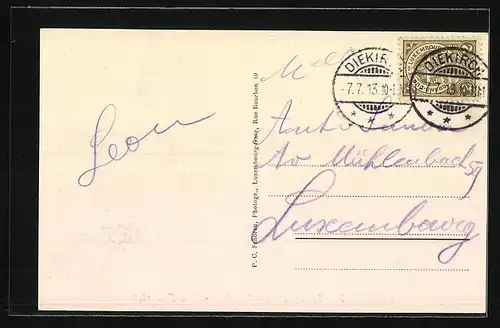 Leon
P. C. Schoren, Photogr., Luxembourg-Gare, Rue Bourbon 10
DIEKIRCH
-7.7.13.10-11
LUXEMBOURG
DIEKIRCH
7.13 10-11
Mühlenbach 59
Luxembourg